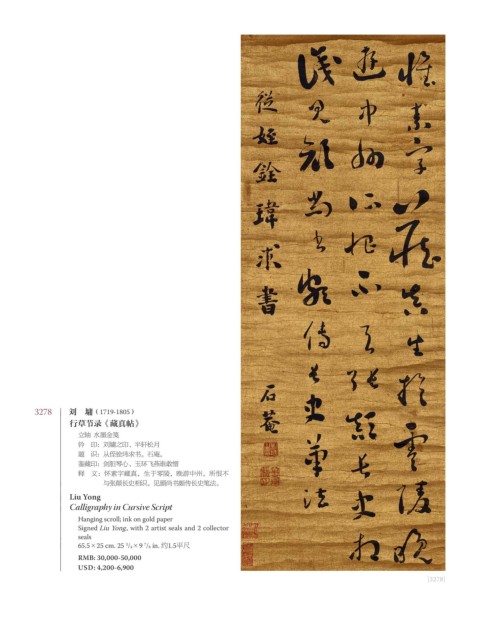 懷素字藏真生於零陵晚
遊中州所恨不与張顛長史相
識見顔尚書傳長史筆法
從姪銓瑋求書
石菴
3278 刘 墉（1719-1805）
行草节录《藏真帖》
立轴 水墨金笺
钤 印：刘墉之印、半轩松月
题 识：从侄铨玮求书，石庵。
鉴藏印：剑胆琴心、玉环飞燕
释 文：怀素字藏真，生于零陵，晚游中州，所恨不
与张颠长史相识，见颜尚书颇传长史笔法。
Liu Yong
Calligraphy in Cursive Script
Hanging scroll; ink on gold paper
Signed Liu Yong, with 2 artist seals and 2 collector
seals
65.5×25 cm. 25 3/4×9 7/8 in. 约1.5平尺
RMB: 30,000-50,000
USD: 4,200-6,900
[3278]